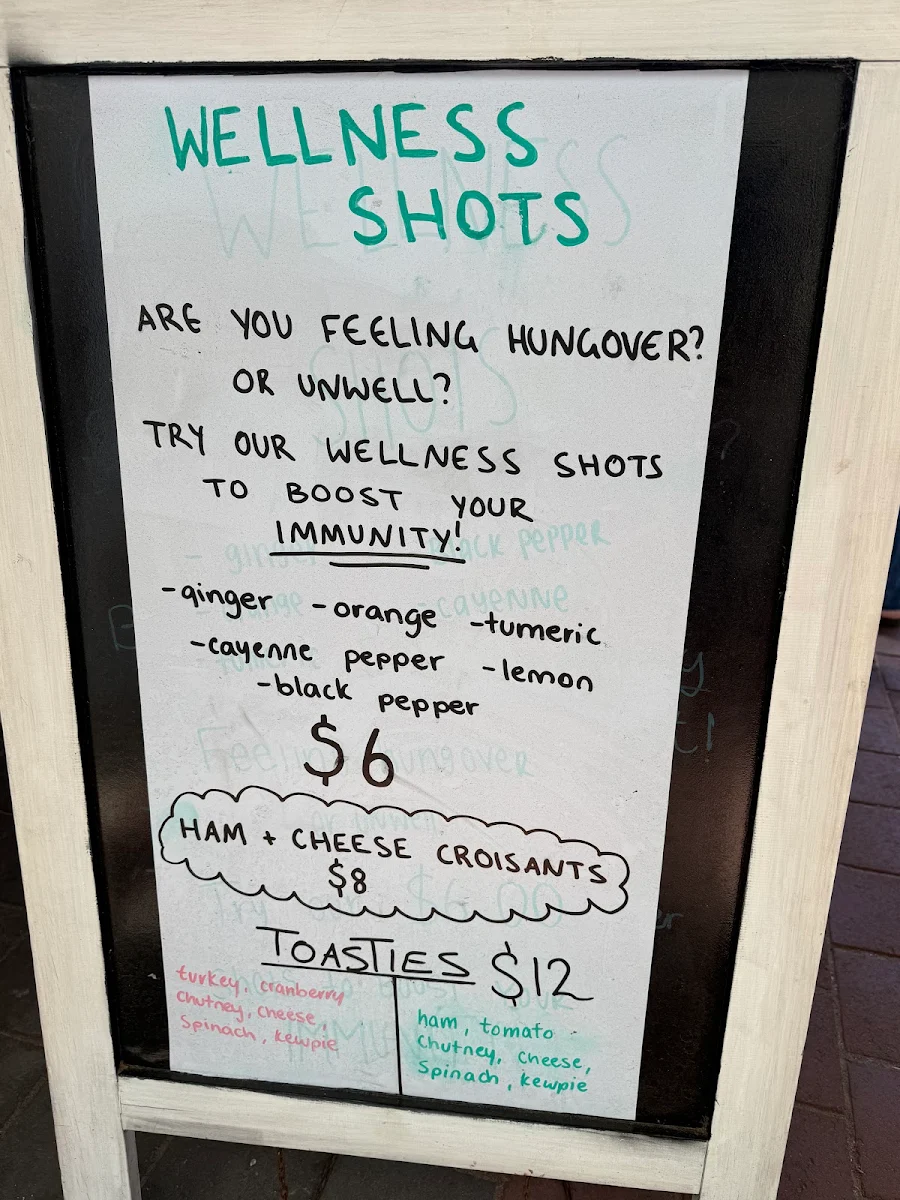 WELLNESS
SHOTS
ARE YOU FEELING HUNGOVER?
OR UNWELL?
TRY OUR WELLNESS SHOTS
TO BOOST YOUR
IMMUNITY!
-ginger -orange -tumeric
-cayenne pepper -lemon
-black pepper
$6
HAM + CHEESE CROISANTS
$8
TOASTIES $12
turkey, cranberry
Chutney, cheese,
Spinach, kewpie
ham, tomato
Chutney, cheese,
Spinach, kewpie